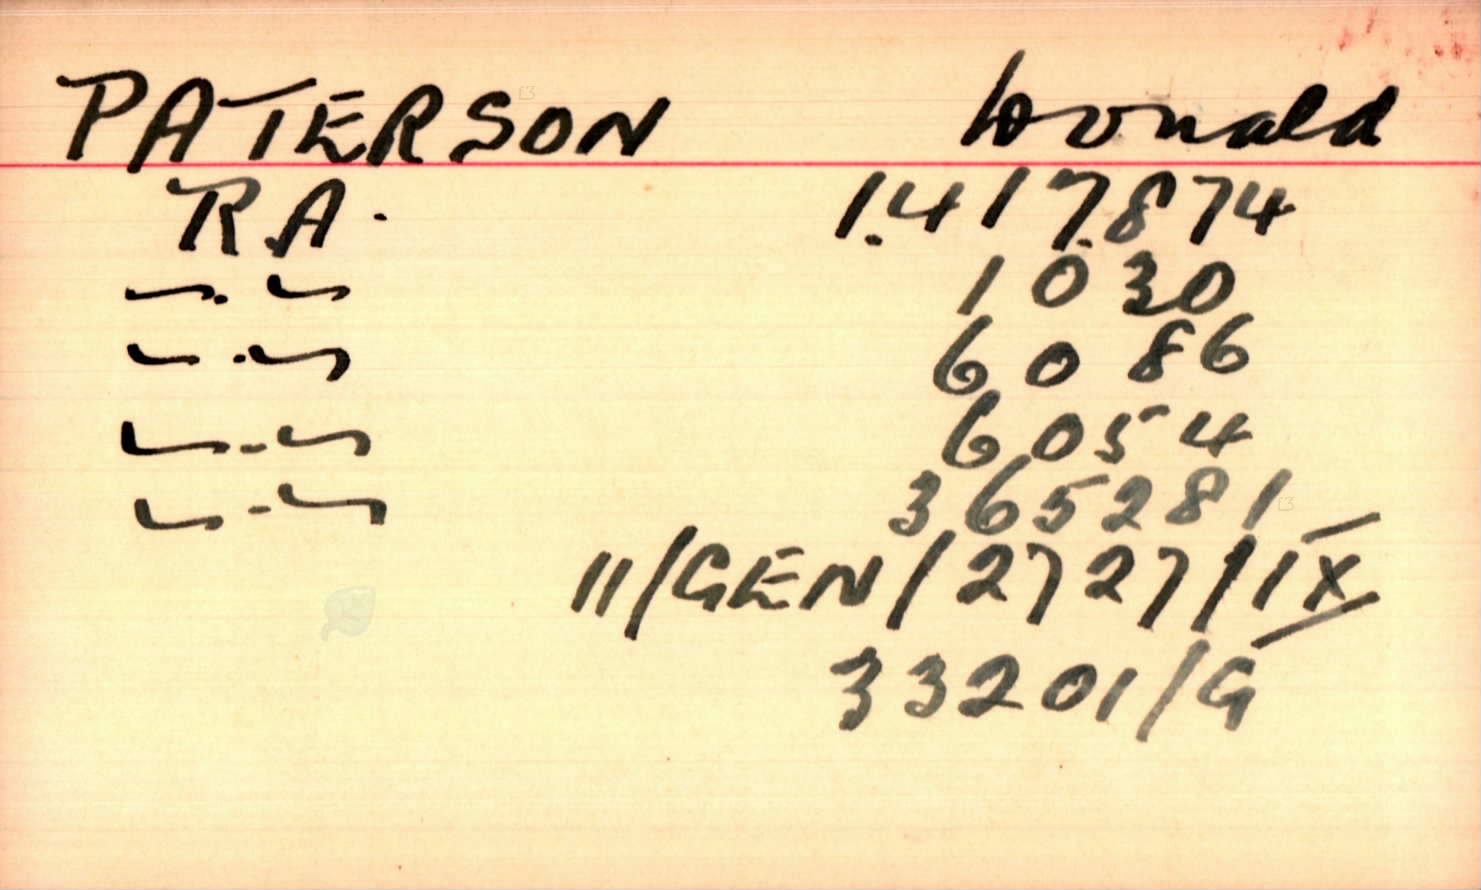 PATERSON Donald
R.A. 1.417.874
—.— 1030
—.— 6086
—.— 6054
—.— 365281
11/GEN/2727/IX
33201/G